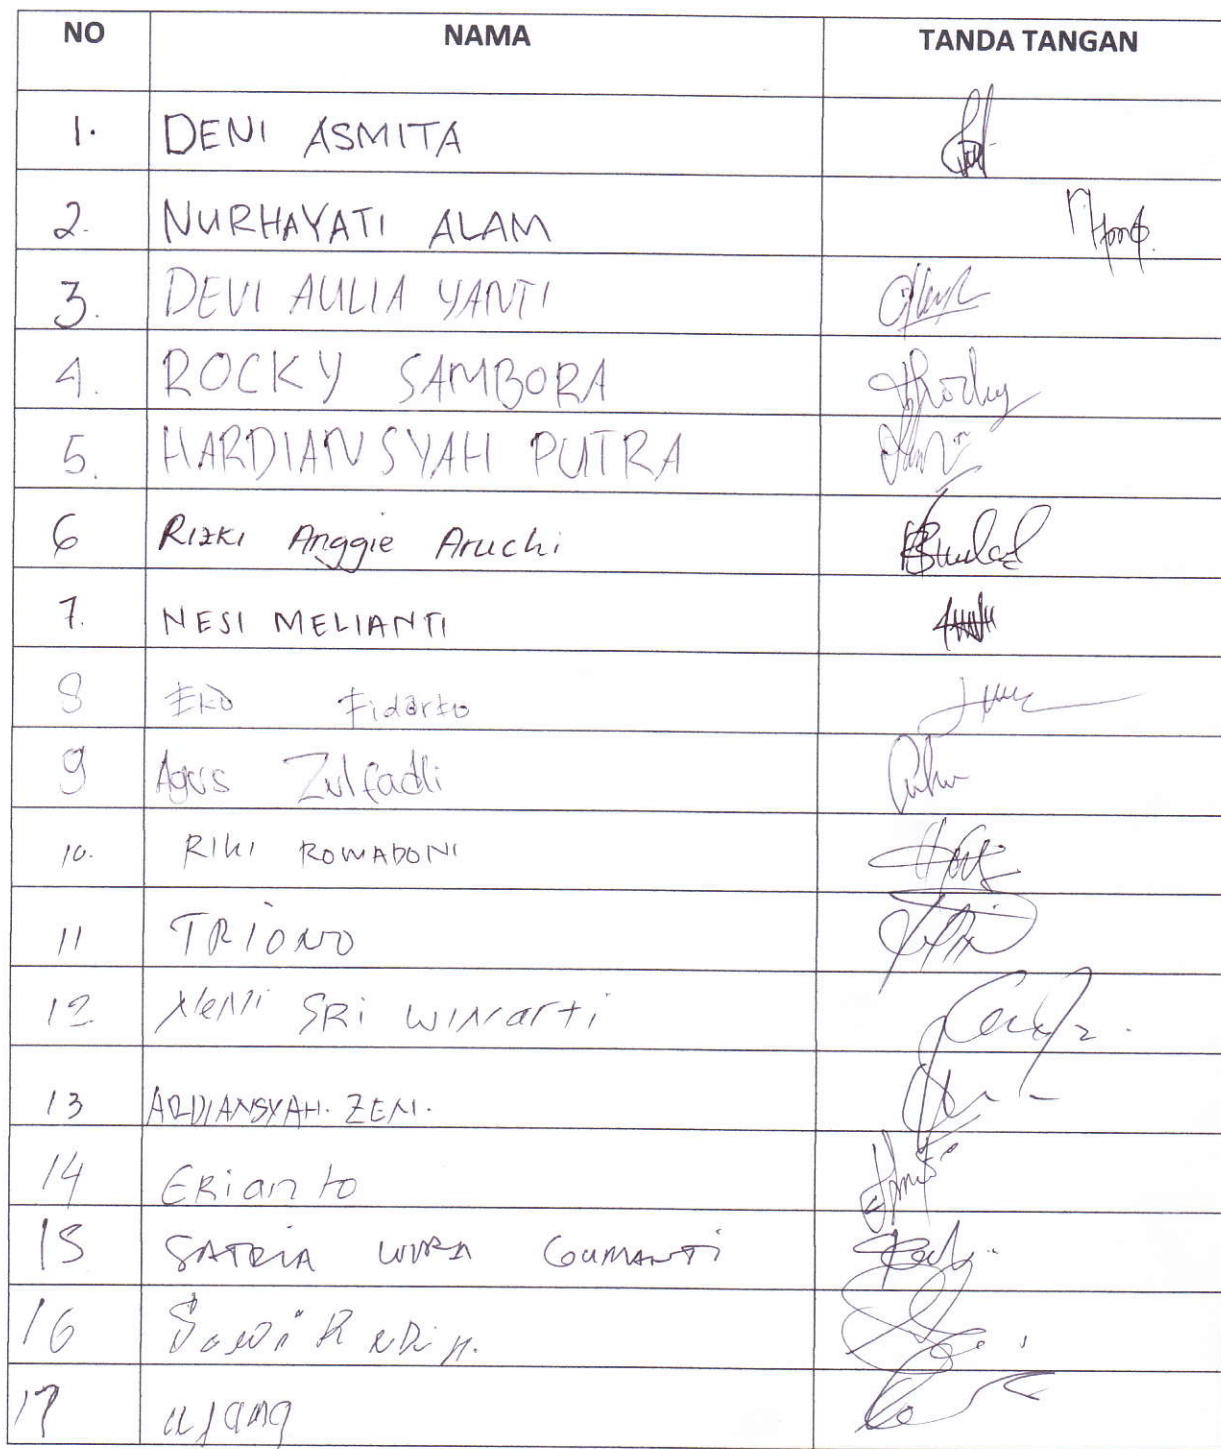 NO NAMA TANDA TANGAN
1. DENI ASMITA
2. NURHAYATI ALAM
3. DEVI AULIA YANTI
4. ROCKY SAMBORA
5. HARDIANSYAH PUTRA
6 Rizki Anggie Aruchi
7. NESI MELIANTI
8 EKO Fidarto
9 Agus Zulfadli
10. RIKI ROMADONI
11 TRIONO
12 SRi WINarti
13 ARDIANSYAH. ZEN.
14 ERianto
15 SATRIA WIRA GUMANTI
16
17 ujang